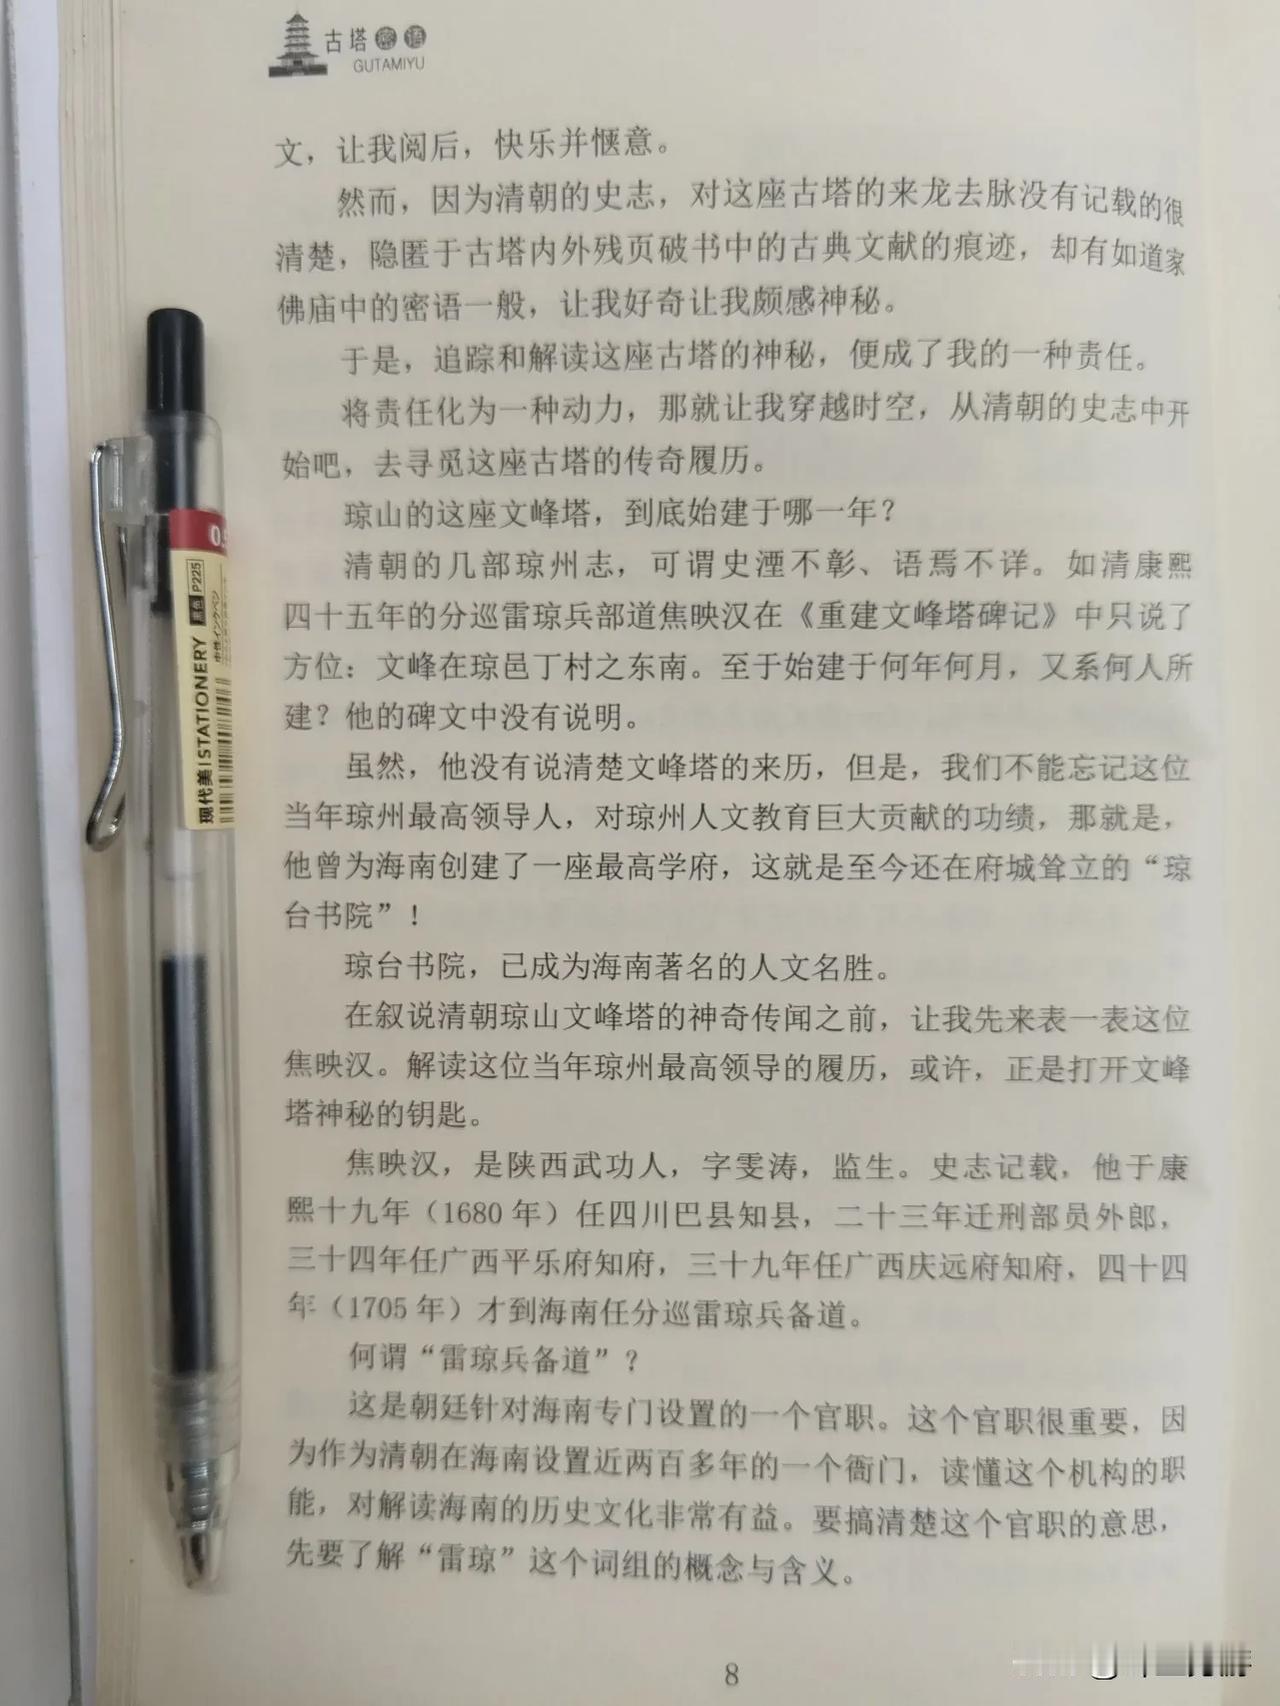 古塔密语
GUTAMIYU
文，让我阅后，快乐并惬意。
然而，因为清朝的史志，对这座古塔的来龙去脉没有记载的很
清楚，隐匿于古塔内外残页破书中的古典文献的痕迹，却有如道家
佛庙中的密语一般，让我好奇让我颇感神秘。
于是，追踪和解读这座古塔的神秘，便成了我的一种责任。
将责任化为一种动力，那就让我穿越时空，从清朝的史志中开
始吧，去寻觅这座古塔的传奇履历。
琼山的这座文峰塔，到底始建于哪一年？
清朝的几部琼州志，可谓史湮不彰、语焉不详。如清康熙
四十五年的分巡雷琼兵部道焦映汉在《重建文峰塔碑记》中只说了
方位：文峰在琼邑丁村之东南。至于始建于何年何月，又系何人所
建？他的碑文中没有说明。
虽然，他没有说清楚文峰塔的来历，但是，我们不能忘记这位
当年琼州最高领导人，对琼州人文教育巨大贡献的功绩，那就是，
他曾为海南创建了一座最高学府，这就是至今还在府城耸立的“琼
台书院”！
琼台书院，已成为海南著名的人文名胜。
在叙说清朝琼山文峰塔的神奇传闻之前，让我先来表一表这位
焦映汉。解读这位当年琼州最高领导的履历，或许，正是打开文峰
塔神秘的钥匙。
焦映汉，是陕西武功人，字雯涛，监生。史志记载，他于康
熙十九年（1680 年）任四川巴县知县，二十三年迁刑部员外郎，
三十四年任广西平乐府知府，三十九年任广西庆远府知府，四十四
年（1705 年）才到海南任分巡雷琼兵备道。
何谓“雷琼兵备道”？
这是朝廷针对海南专门设置的一个官职。这个官职很重要，因
为作为清朝在海南设置近两百多年的一个衙门，读懂这个机构的职
能，对解读海南的历史文化非常有益。要搞清楚这个官职的意思，
先要了解“雷琼”这个词组的概念与含义。
8
现代美|STATIONERY 黑色 P225
中性インクペン